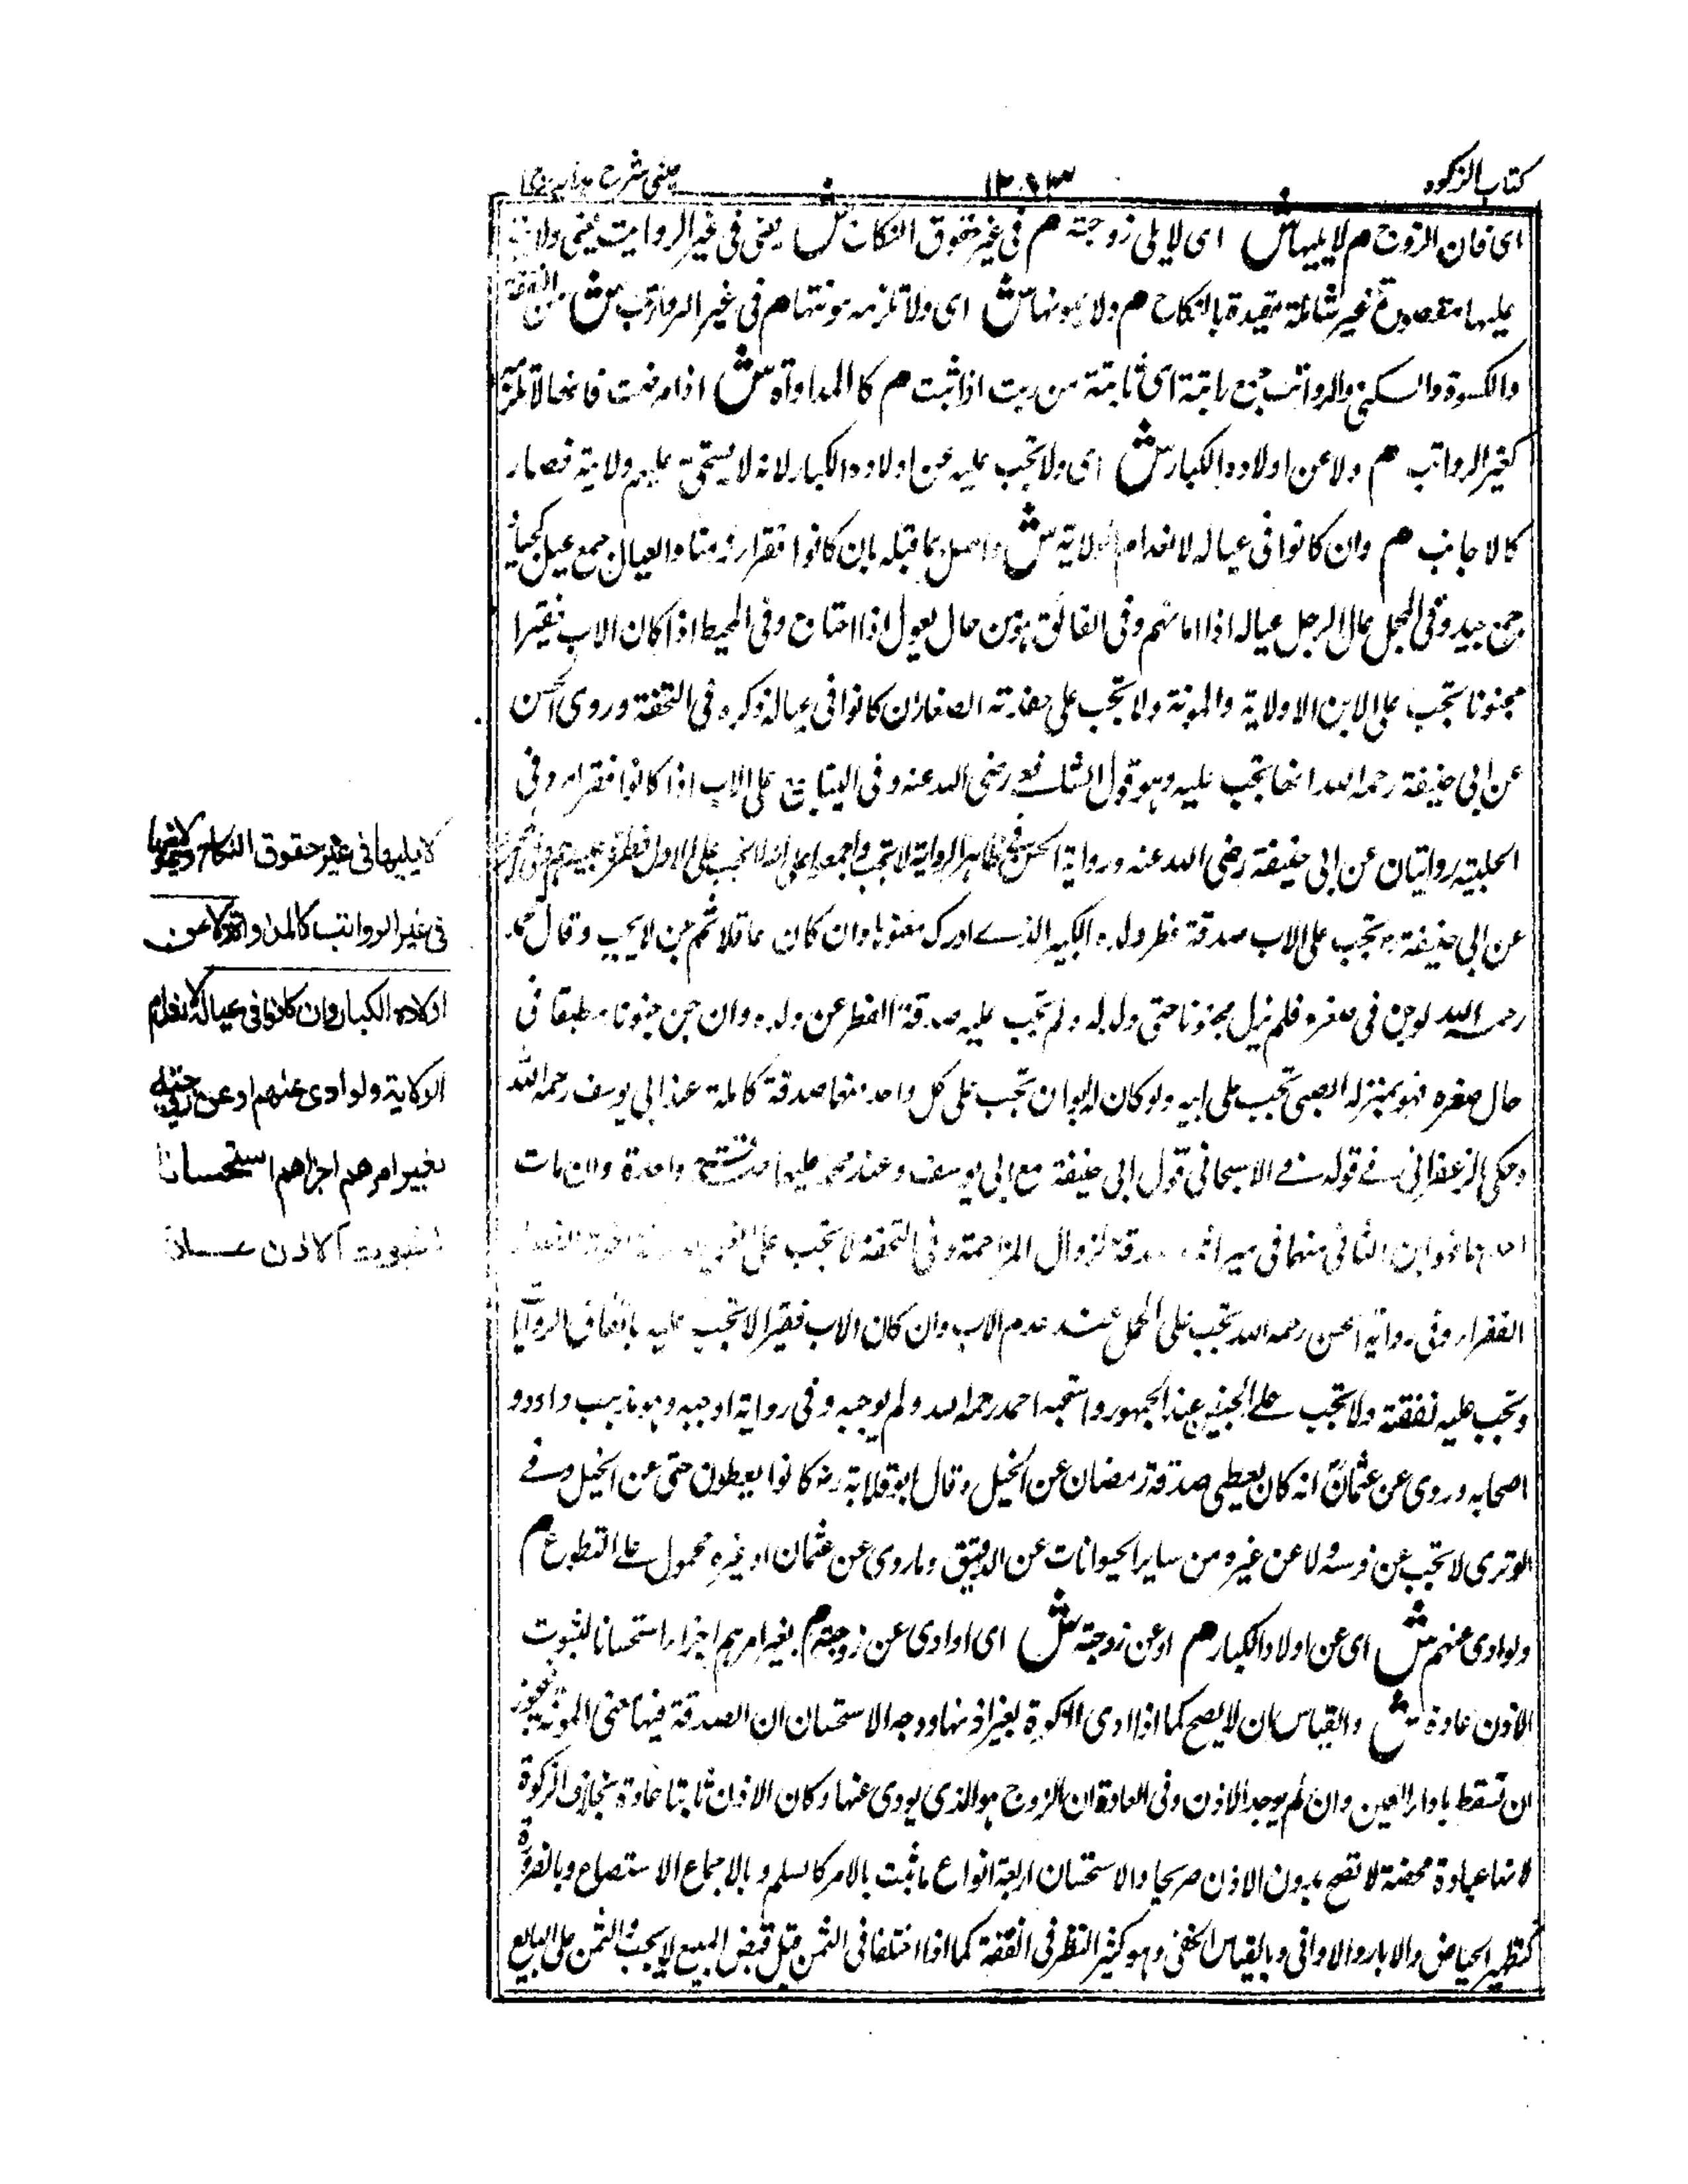 كتاب الزكوة
١٢٨٣
عينى شرح هدايه ج١
اى فان الزوج م لا يليها ش اى لا يلى زوجته م فى غير حقوق النكاح ش يعنى فى غير الروايت يعنى ولا
عليها مقصورة غير شاملة مقيدة بالنكاح م ولا يمونها ش اى ولا تلزمه مونتها م فى غير الرواتب ش من النفقة
والكسوة والسكنى والرواتب جمع راتبة اى ثابتة من رتب اذا ثبت م كالمداواة ش اذا مرضت فانها لا تلزمه
كغير الرواتب م ولا عن اولاده الكبار ش اى ولا تجب عليه عن اولاده الكبار لانه لا يستحق عليهم ولاية فصار
كالاجانب م وان كانوا فى عياله لانعدام الولاية ش واصل بما قبله بان كانوا فقراء زمنا والعيال جمع عيل كجياد
جمع جيد وفى المجمل عال الرجل عياله اذا مانهم وفى الفائق هو من عال يعول اذا احتاج وفى المحيط اذا كان الاب فقيرا
مجنونا تجب على الابن الاولاية والمونة ولا تجب على حفدته الصغار ان كانوا فى عياله ذكره فى التحفة وروى الحسن
عن ابى حنيفة رحمه الله انها تجب عليه وهو قول الشافعے رضى الله عنه وفى الينابيع على الاب اذا كانوا فقراء وفى
الحلية روايتان عن ابى حنيفة رضى الله عنه ورواية الحسن فى ظاهر الرواية لا تجب واجمعوا على انه لا تجب على الاول فطرة
عن ابى حنيفة رح تجب على الاب صدقة فطر ولده الكبير الذے ادرك معتوها وان كان عاقلا ثم جن لا يجب وقال محمد
رحمه الله لو جن فى صغره فلم يزل مجنونا حتى ولد له ولم تجب عليه صدقة الفطر عن ولده وان جن جنونا مطبقا فى
حال صغره فهو بمنزلة الصبى تجب على ابيه ولو كان له ابوان تجب على كل واحد منهما صدقة كاملة عند ابى يوسف رحمه الله
وحكى الزعفرانى فے قوله فے الاسبجابى قول ابى حنيفة مع ابى يوسف وعند محمد عليهما واحدة وان مات
احدهما فهو ابن الثانى منهما فى ميراثه صدقة لزوال المزاحمة وفى التحفة لا تجب على
الفقراء وفى رواية الحسن رحمه الله تجب على الجد عند عدم الاب وان كان الاب فقيرا لا تجب عليه باتفاق الروايات
وتجب عليه نفقته ولا تجب علے الجنين عند الجمهور واستحبه احمد رحمه الله ولم يوجبه وفى رواية اوجبه وهو مذهب داود و
اصحابه وروى عن عثمان انه كان يعطى صدقة رمضان عن الحبل وقال ابو قلابة رض كانوا يعطون حتى عن الحبل وفے
الوترى لا تجب عن فرسه ولا عن غيره من ساير الحيوانات عن الدقيق وما روى عن عثمان او غيره محمول علے التطوع م
ولو ادى عنهم ش اى عن اولاد الكبار م او عن زوجته ش اى او ادى عن زوجته م بغير امرهم اجزاء استحسانا لثبوت
الاذن عادة ش والقياس ان لا يصح كما اذا ادى الزكوة بغير اذنها ووجه الاستحسان ان الصدقة فيها معنى المونة فيجوز
ان تسقط باداء الغير وان لم يوجد الاذن وفى العادة ان الزوج هو الذى يودى عنها وكان الاذن ثابتا عادة بخلاف الزكوة
لانها عبادة محضة لا تصح بدون الاذن صريحا والاستحسان اربعة انواع ما ثبت بالامر كالسلم وبالاجماع الاستصناع وبالضرورة
كتطهير الحياض والابار والاوانى وبالقياس الخفى وهو كثير النظر فى الفقه كما اذا اختلفا فى الثمن قبل قبض المبيع لا يجب الثمن على البايع
لا يليها فى غير حقوق النكاح ولا يمونها
فى غير الرواتب كالمداواة ولا عن
اولاده الكبار وان كانوا فى عياله لانعدام
الولاية ولو ادى عنهم او عن زوجته
بغير امرهم اجزاهم استحسانا
لثبوت الاذن عادة